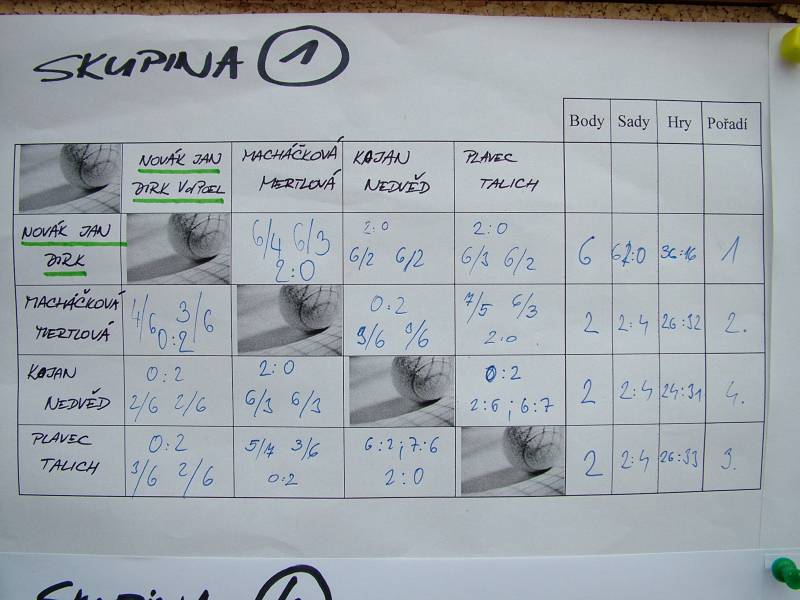 SKUPINA 1
Body Sady Hry Pořadí
NOVÁK JAN MACHÁČKOVÁ KAJAN PLAVEC
DIRK MERTLOVÁ NEDVĚD TALICH
NOVÁK JAN 6/4 6/3 2:0 2:0
DIRK 2:0 6/2 6/2 6/3 6/2 6 6:0 36:16 1
MACHÁČKOVÁ 4/6 3/6 0:2 7/5 6/3
MERTLOVÁ 0:2 3/6 3/6 2:0 2 2:4 26:32 2.
KAJAN 0:2 2:0 0:2
NEDVĚD 2/6 2/6 6/3 6/3 2:6; 6:7 2 2:4 24:31 4.
PLAVEC 0:2 5/7 3/6 6:2; 7:6
TALICH 3/6 2/6 0:2 2:0 2 2:4 26:33 3.
SKUPINA